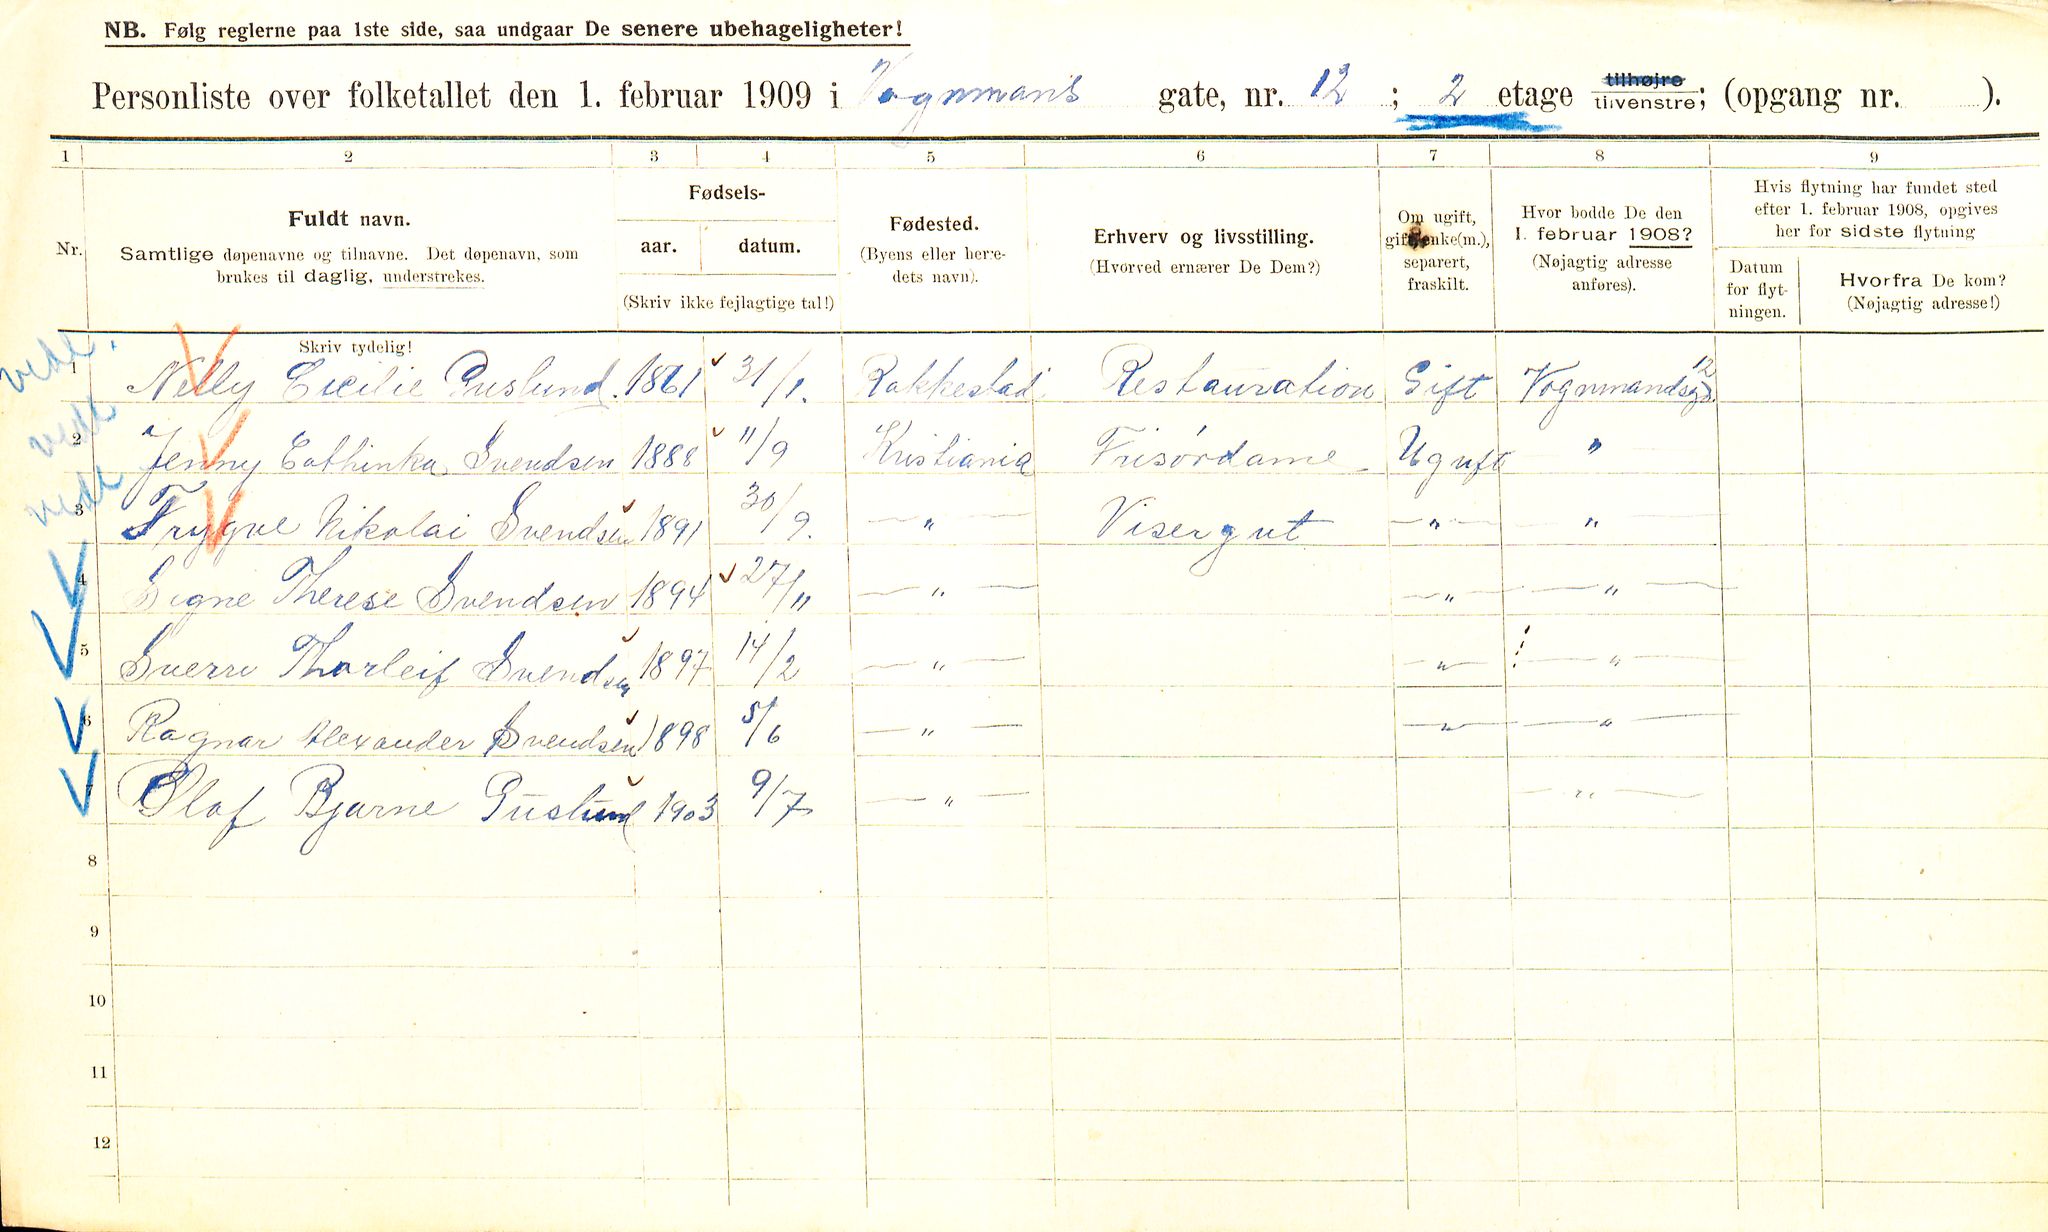 NB. Følg reglerne paa 1ste side, saa undgaar De senere ubehageligheter!
Personliste over folketallet den 1. februar 1909 i Vognmans gate, nr. 12 ; 2 etage tilhøjre tilvenstre; (opgang nr. ).
1 2 3 4 5 6 7 8 9
Nr.
Fuldt navn.
Samtlige døpenavne og tilnavne. Det døpenavn, som
brukes til daglig, understrekes.
Fødsels-
aar. datum.
(Skriv ikke fejlagtige tal!)
Fødested.
(Byens eller herre-
dets navn).
Erhverv og livsstilling.
(Hvorved ernærer De Dem?)
Om ugift,
gift, enke(m.),
separert,
fraskilt.
Hvor bodde De den
1. februar 1908?
(Nøjagtig adresse
anføres).
Hvis flytning har fundet sted
efter 1. februar 1908, opgives
her for sidste flytning
Datum
for flyt-
ningen.
Hvorfra De kom?
(Nøjagtig adresse!)
Skriv tydelig!
1 Nelly Cicilie Puslund. 1861 31/1. Rakkestad Restauration Gift Vognmandsgd. 12
2 Jenny Cathinka Svendsen 1888 11/9 Kristiania Frisørdame Ugift "
3 Trygve Nikolai Svendsen 1891 30/9. — " — Visergut — " — "
4 Signe Therese Svendsen 1894 27/11 — " — — " — — " —
5 Sverre Thorleif Svendsen 1897 14/2 — " — — " — — " —
6 Ragnar Alexander Svendsen 1898 5/6 — " — — " — — " —
7 Olaf Bjarne Puslund 1903 9/7 — " — — " —
8
9
10
11
12